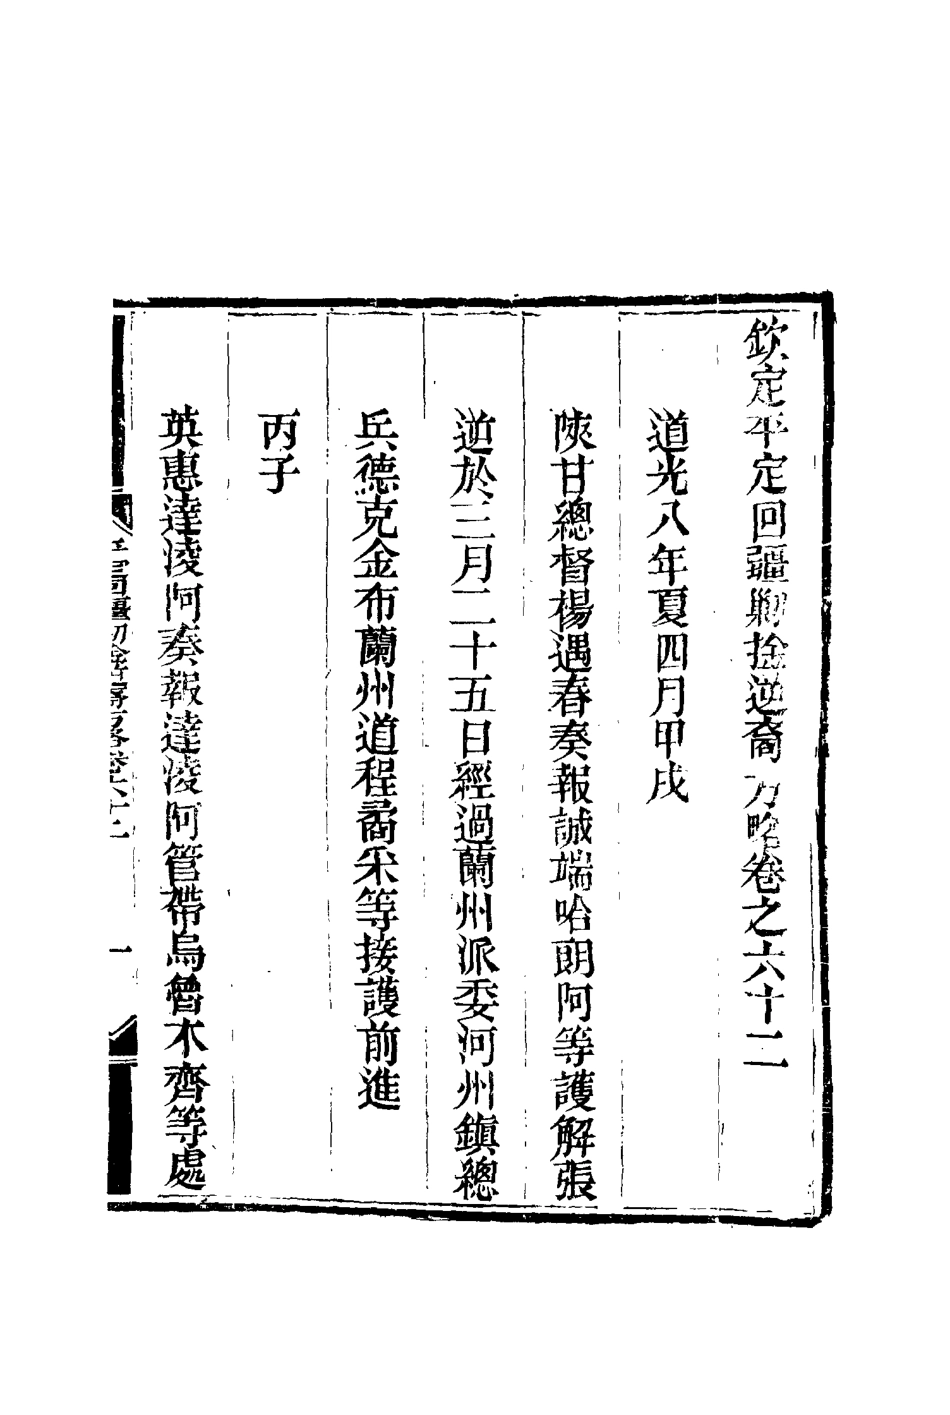 欽定平定回疆勦捡逆裔方略卷之六十二
道光八年夏四月甲戌
陜甘總督楊遇春奏報誠端哈朗阿等護解張
逆於三月二十五日經過蘭州派委河州鎮總
兵德克金布蘭州道程矞采等接護前進
丙子
英惠達淩阿奏報達淩阿管帶烏魯木齊等處
一